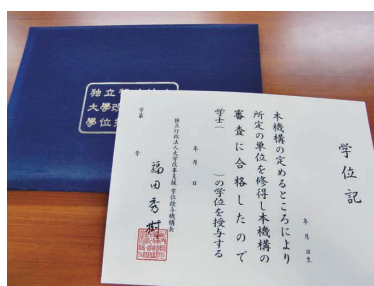 独立行
大學改
學位授
学位記
年 月 日生
本機構の定めるところにより
所定の単位を修得し本機構の
審査に合格したので
学士( )の学位を授与する
年 月 日
独立行政法人大学改革支援・学位授与機構長
福田秀樹
学第 号